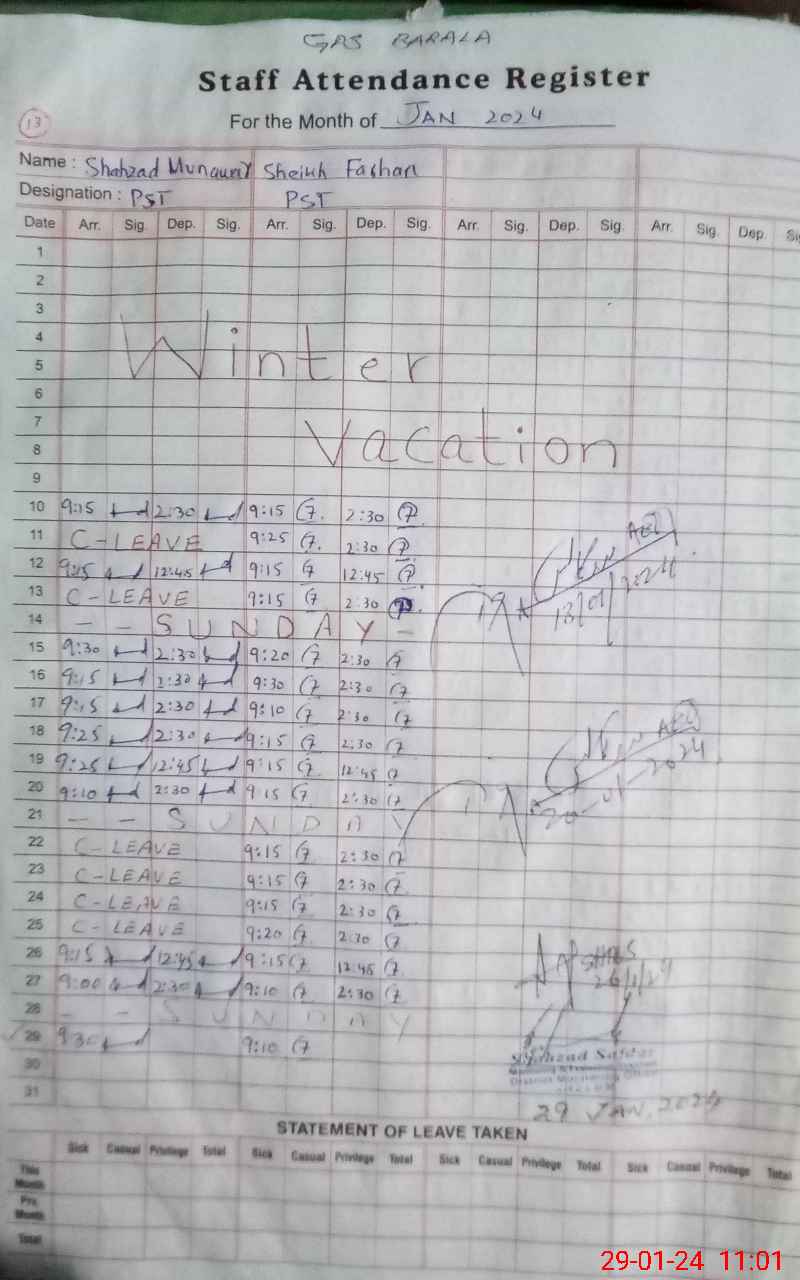 GPS BARALA
Staff Attendance Register
13
For the Month of JAN 2024
Name : Shahzad Munawar Sheikh Farhan
Designation : PST PST
Date Arr. Sig. Dep. Sig. Arr. Sig. Dep. Sig. Arr. Sig. Dep. Sig. Arr. Sig. Dep.
1
2
3
4
Winter
5
6
7
Vacation
8
9
10 9:15 2:30 9:15 2:30
11 C-LEAVE 9:25 2:30
12 9:15 12:45 9:15 12:45
13 C-LEAVE 9:15 2:30
13/01/2024
14 - - SUNDAY -
15 9:30 2:30 9:20 2:30
16 9:15 2:30 9:30 2:30
17 9:15 2:30 9:10 2:30
18 9:25 2:30 9:15 2:30
19 9:25 12:45 9:15 12:45
20 9:10 2:30 9:15 2:30
20-01-2024
21 - - SUNDAY
22 C-LEAVE 9:15 2:30
23 C-LEAVE 9:15 2:30
24 C-LEAVE 9:15 2:30
25 C-LEAVE 9:20 2:30
26 9:15 12:45 9:15 12:45
27 9:00 2:30 9:10 2:30
28 - - SUNDAY
29 9:30 9:10
30
31
29 JAN. 2024
STATEMENT OF LEAVE TAKEN
Sick Casual Privilege Total Sick Casual Privilege Total Sick Casual Privilege Total Sick Casual Privilege Total
This Month
Pre. Month
Total
29-01-24 11:01